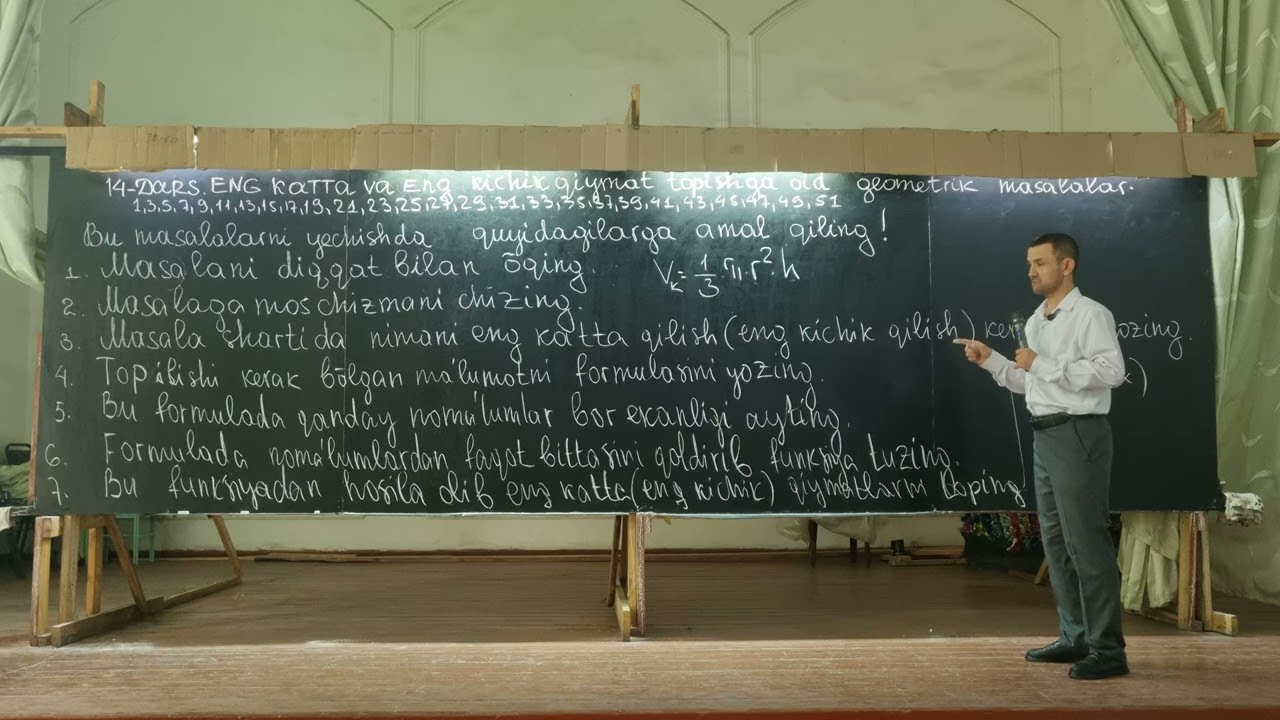 14-DARS. ENG KATTA VA Eng kichik qiymat topishga oid geometrik masalalar.
1,3,5,7,9,11,13,15,17,19,21,23,25,27,29,31,33,35,37,39,41,43,45,47,49,51
Bu masalalarni yechishda quyidagilarga amal qiling!
1. Masalani diqqat bilan õqing. V_k = 1/3 π·r²·h
2. Masalaga mos chizmani chizing.
3. Masala shartida nimani eng katta qilish (eng kichik qilish)
4. Topilishi kerak bõlgan ma'lumotni formulasini yozing. x)
5. Bu formulada qanday noma'lumlar bor ekanligi ayting.
6. Formulada noma'lumlardan faqat bittasini qoldirib funksiya tuzing.
7. Bu funksiyadan hosila olib eng katta (eng kichik) qiymatlarni toping